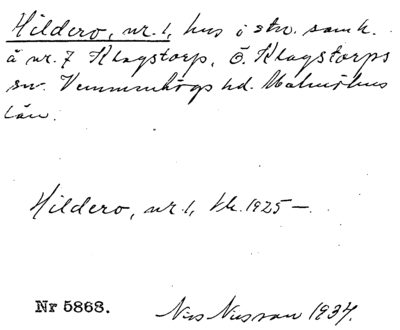 Hildero, nr. 1, hus i stn. samh.
å nr. 7 Klagstorp, Ö. Klagstorps
sn. Vemmenhögs hd. Malmöhus
län.
Hildero, nr. 1, tk. 1925 –.
Nr 5868.
Nils Nilsson 1937.